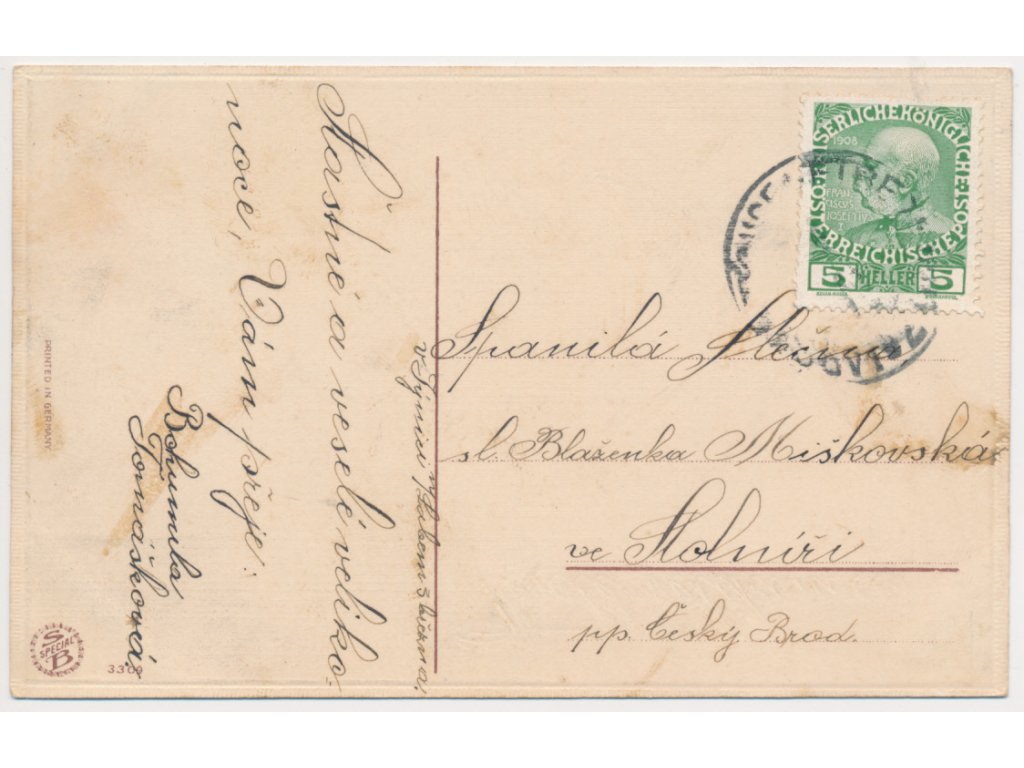 Šťastné a veselé veliko-
noce, Vám přeje:
Bohumila
Tomášková.
PRINTED IN GERMANY
SB
SPECIAL
KAISERLICHE KÖNIGLICHE
ÖSTERREICHISCHE POST
1908
FRAN
CISCUS
JOSEPHUS
I
5 HELLER 5
Spanilá Slečna
sl. Blaženka Miškovská
ve Štolníři
pp. Český Brod.